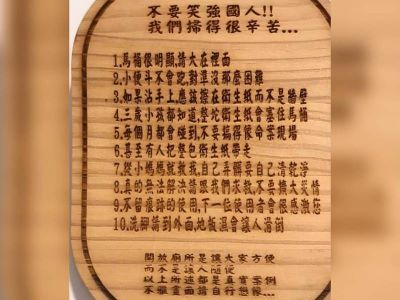 不要笑強國人!!
我們掃得很辛苦...
1.馬桶很明顯,請大在裡面
2.小便斗不會吃,對準沒那麼困難
3.如果沾手上,應該擦在衛生紙而不是牆壁
4.三歲小孩都知道,整坨衛生紙會塞住馬桶
5.每個月都會碰到,不要搞得像命案現場
6.甚至有人把整包衛生紙帶走
7.從小媽媽就教我,自己弄髒要自己清乾淨
8.真的無法解決請跟我們求救,不要擴大災情
9.不留痕跡的使用,下一位使用者會很感激您
10.洗腳請到外面,地板濕會讓人滑倒
開放廁所是讓大家方便
而不是讓人隨便
以上所述都是真實案例
不雅畫面請自行想像...